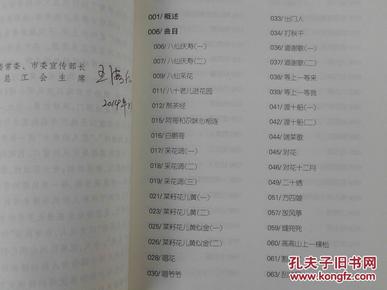 常委、市委宣传部长
总工会主席
2014年
001/概述
006/曲目
006/八仙庆寿（一）
007/八仙庆寿（二）
009/八仙采花
011/八十老儿进花园
012/熬茶经
015/阿哥和花妹心相连
016/白鹏哥
017/采花调（一）
018/采花调（二）
019/采花调（三）
021/菜籽花儿黄（一）
023/菜籽花儿黄（二）
025/菜籽花儿黄似金（一）
026/菜籽花儿黄似金（二）
028/唱花
030/唱爷爷
033/出门人
034/打秋千
036/道谢歌（一）
037/道谢歌（二）
038/等上一等来
039/等上一等我
041/渡十船（一）
042/渡十船（二）
044/端菜歌
045/对花
046/对花十二月
049/二十绣
051/方四娘
057/放风筝
059/
060/高高山上一棵松
061/
063/
孔夫子旧书网